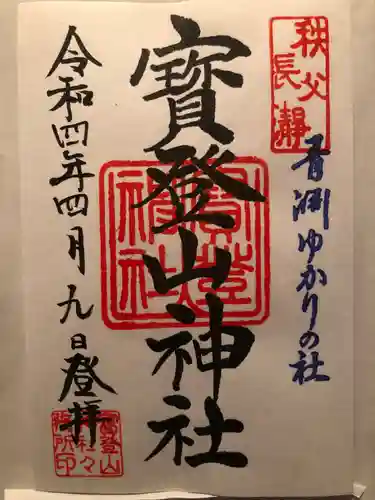 秩父
長瀞
青淵ゆかりの社
寳登山神社
寳登
山
神社
令和四年四月九日登拝
寳登山
神社々
務所印